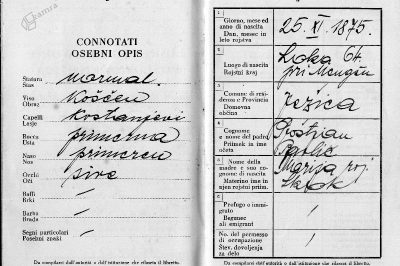 CONNOTATI
OSEBNI OPIS
Statura
Stas normal.
Viso
Obraz Koščen
Capelli
Lasje Kostanjevi
Bocca
Usta primerna
Naso
Nos primeren
Occhi
Oči sive
Baffi
Brki /
Barba
Brada /
Segni particolari
Posebni znaki /
Da compilarsi dall'autorità o dall'istituzione che rilascia il libretto.
1
Giorno, mese ed
anno di nascita
Dan, mesec in
leto rojstva
25. XI. 1875.
2
Luogo di nascita
Rojstni kraj
Loka 64.
pri Mengšu
3
Comune di residenza e Provincia
Domovna
občina
Ježica
4
Cognome
e nome del padre
Priimek in ime
očeta
5
Nome della
madre e suo cognome di nascita
Materino ime in
njen rojstni priim.
Marija roj.
6
Profugo o immigrato
Begunec
ali emigrant
/
7
No. del permesso
di occupazione
Štev. dovoljenja
za delo
/
Da compilarsi dall'autorità o dall'istituzione che rilascia il libretto.